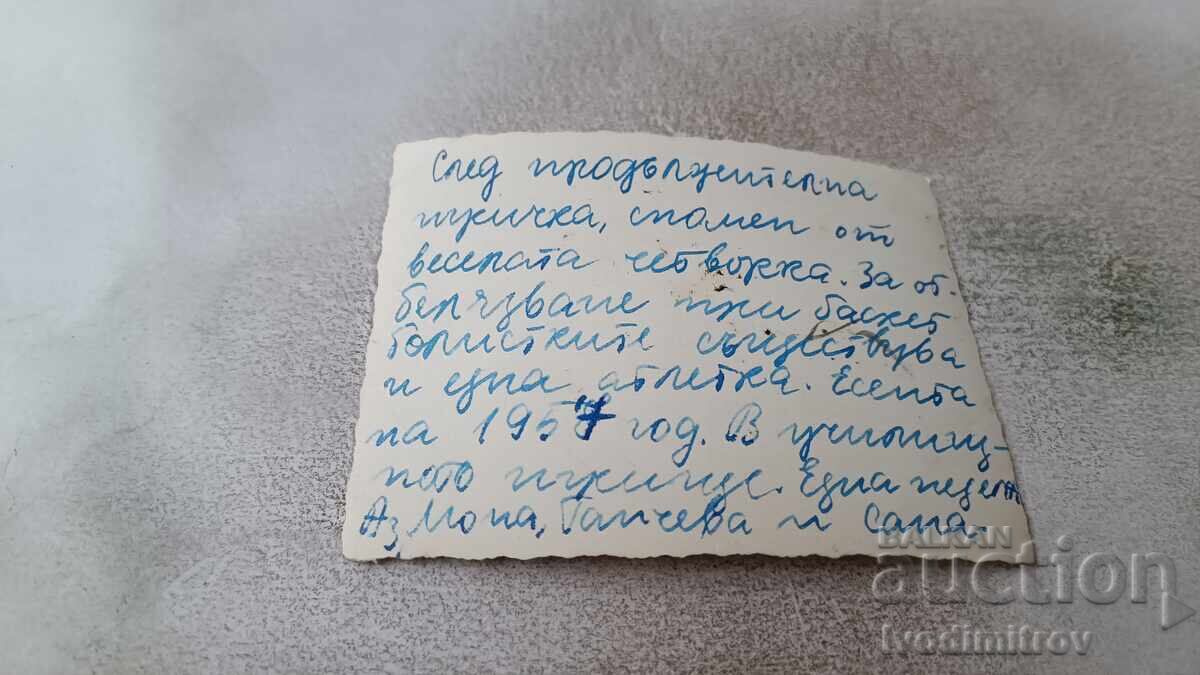 След продължителна
игричка, спомен от
веселата четворка. За от-
белязване при баскет
болистките съществува
и една атлетка. Есента
на 1957 год. В училищ-
ното игрище. Една неделя
Аз, Мона, Ганчева и Сана.
BALKAN
auction
ivodimitrov